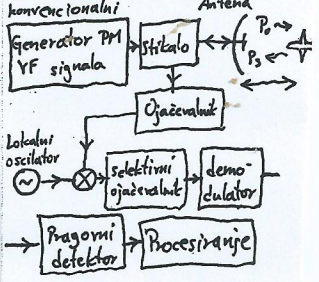 konvencionalni
Antena
Generator PM
VF signala
stikalo
P₀
P₃
Ojačevalnik
Lokalni
oscilator
selektivni
ojačevalnik
demo-
dulator
Pragovni
detektor
Procesiranje